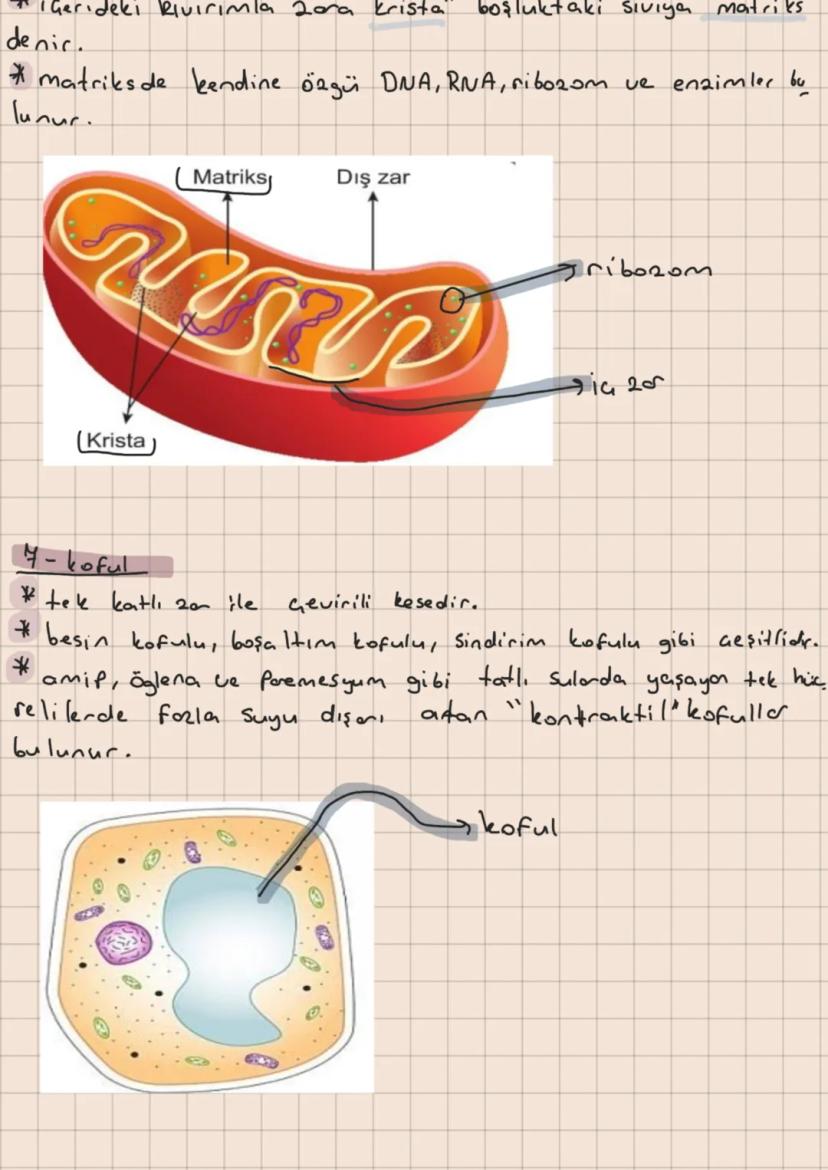 * içerideki kıvırımla zara "krista" boşluktaki sıvıya matriks
denir.
* matriksde kendine özgü DNA, RNA, ribozom ve enzimler bu
lunur.
Matriks
Dış zar
ribozom
iç zar
Krista
7-koful
* tek katlı zar ile çevirili kesedir.
* besin kofulu, boşaltım kofulu, sindirim kofulu gibi çeşitlidr.
* amip, öglena ve paremesyum gibi tatlı sularda yaşayan tek hüc
relilerde fazla suyu dışarı atan "kontraktil" kofullar
bulunur.
koful